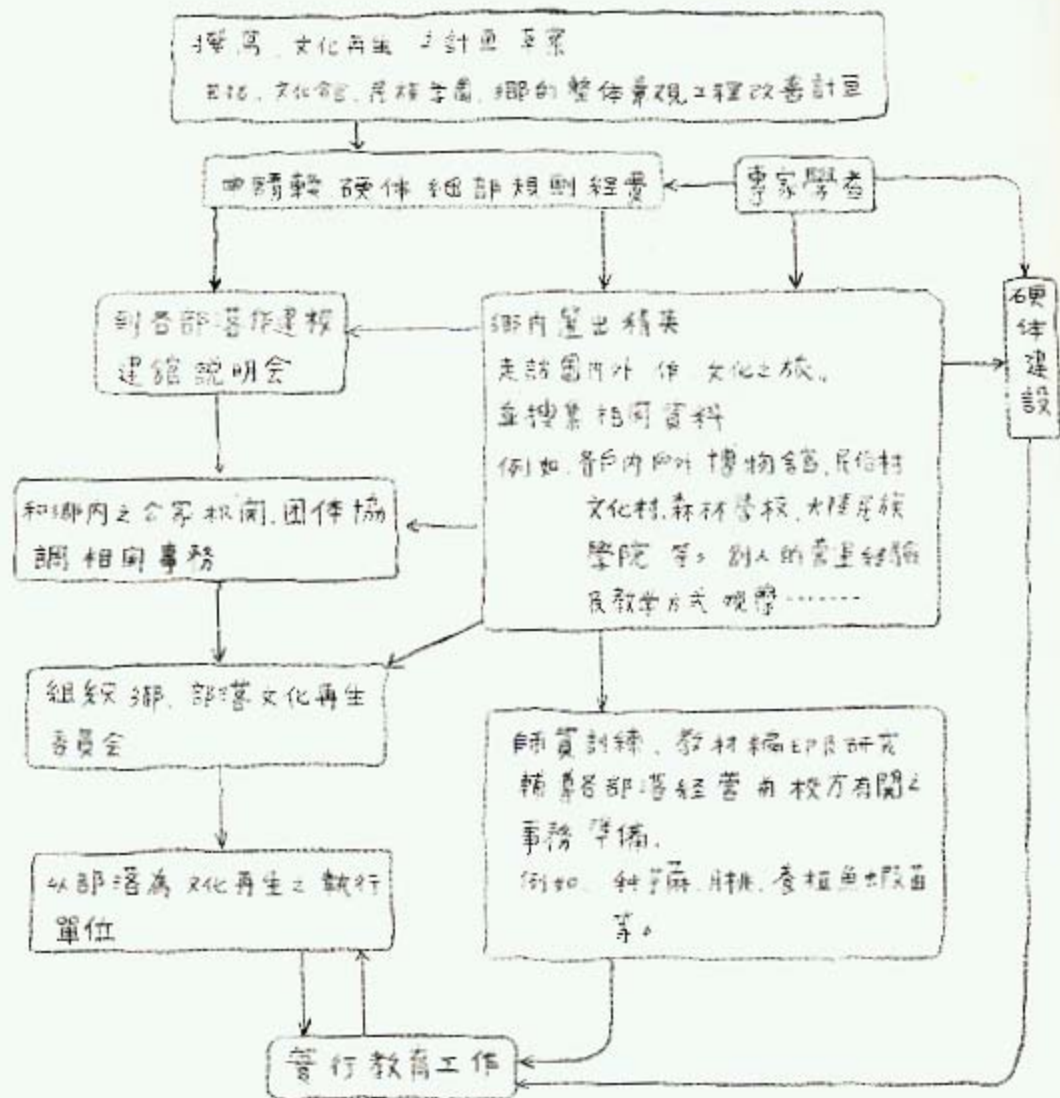 撰寫、文化再生之計畫草案
包括、文化館、民族学園、鄉的整体景観工程改善計畫
申請軟硬体細部規劃経費
專家學者
到各部落作建校
建館説明会
鄉內選出精英
走訪國内外作文化之旅。
並搜集相関資料
例如、各戶内戶外博物館、民俗村
文化村、森林學校、大陸民族
學院等。別人的営運経驗
及教學方式観摩‥‥‥‥
硬体建設
和鄉内之公家机関、团体協
調相関事務
組織鄉、部落文化再生
委員会
師資訓練、教材編印及研究
輔導各部落経営與校方有関之
事務準備。
例如、種苧麻、月桃、養植魚虾苗
等。
以部落為文化再生之執行
單位
實行教育工作